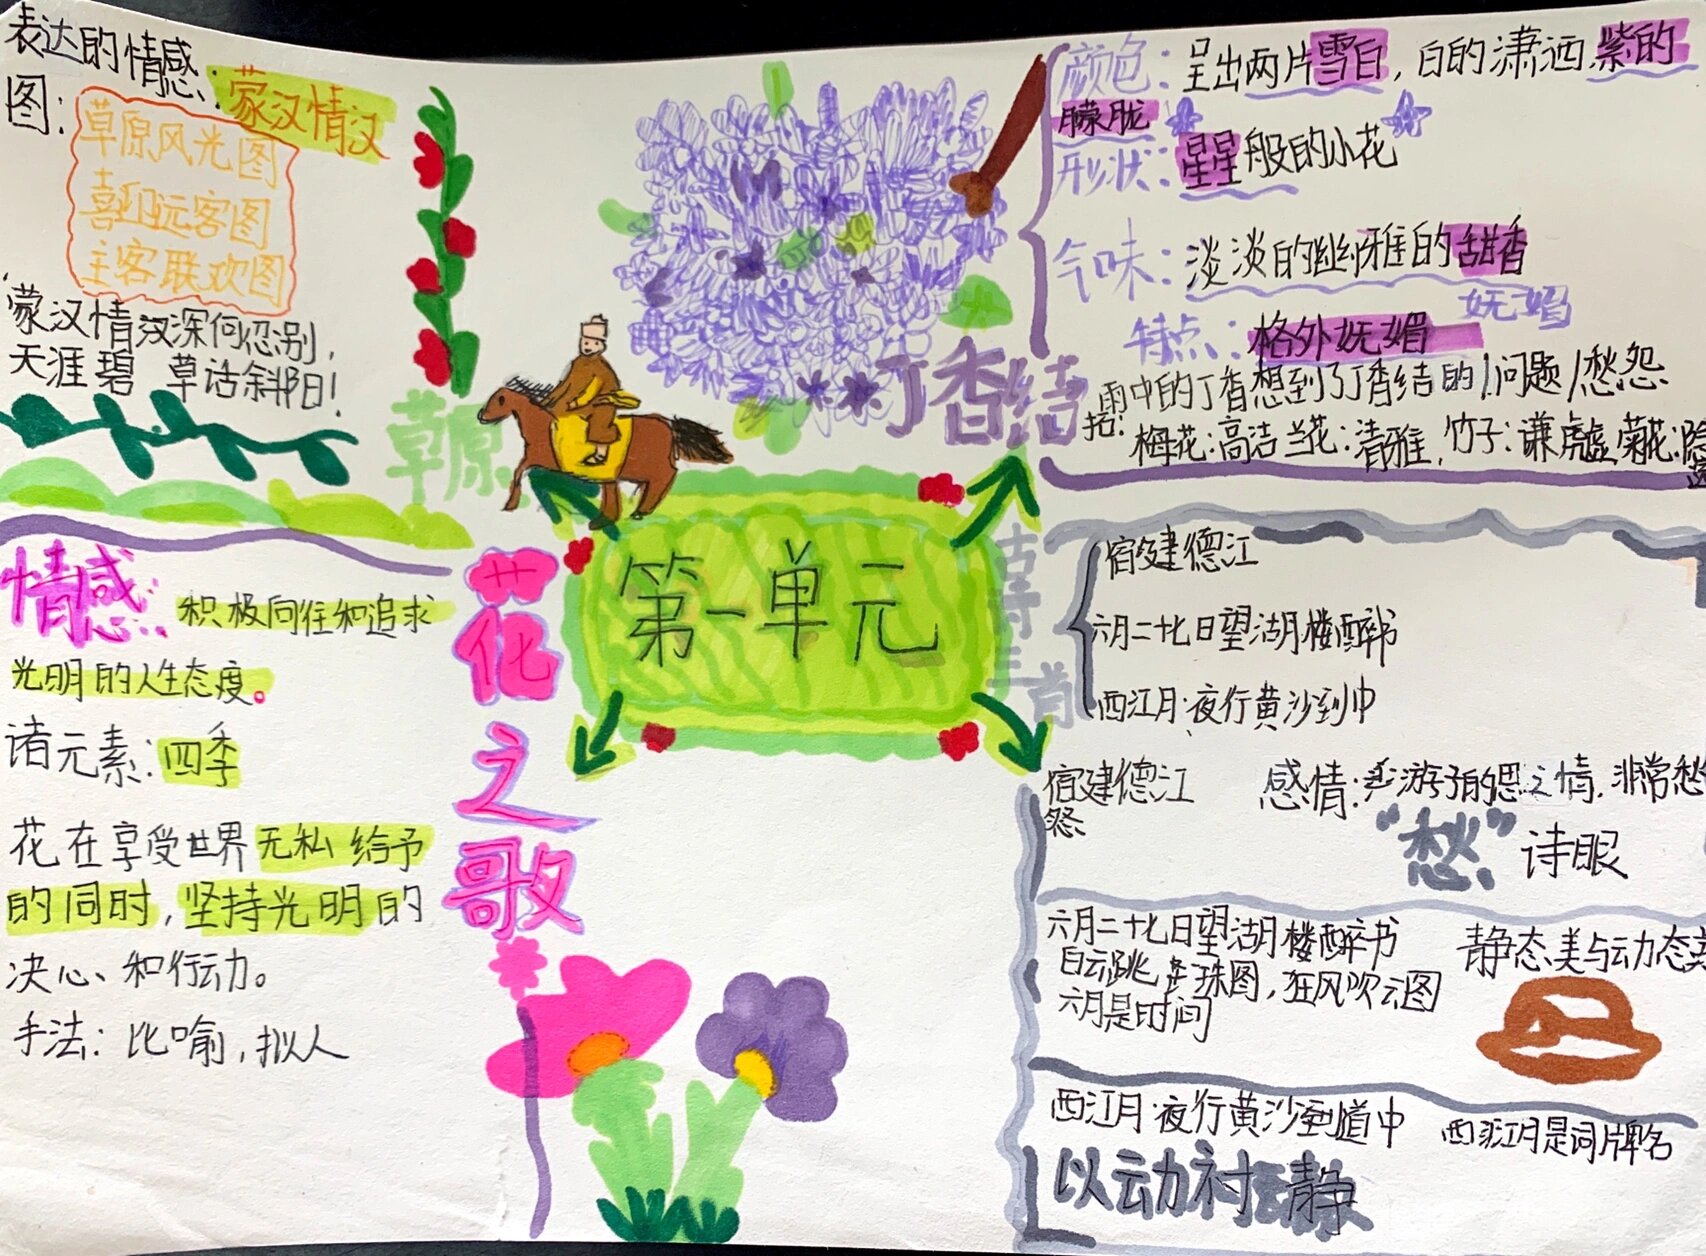 表达的情感:蒙汉情汉
图:
草原风光图
喜迎远客图
主客联欢图
蒙汉情汉深何忍别,
天涯碧草话斜阳!
草原
颜色:呈出两片雪白,白的潇洒,紫的
朦胧
形状:星星般的小花
气味:淡淡的幽雅的甜香
妩媚
特点:格外妩媚
丁香结
雨中的丁香想到了丁香结的 问题/愁怨
梅花:高洁 兰花:清雅,竹子:谦虚 菊花:隐
第一单元
情感: 积极向往和追求
光明的人生态度。
诸元素:四季
花在享受世界无私给予
的同时,坚持光明的
决心、和行动。
手法:比喻,拟人
花之歌
古诗三首
宿建德江
六月二十七日望湖楼醉书
西江月·夜行黄沙到中
宿建德江 感情:游子的思之情,非常愁
"愁" 诗眼
六月二十七日望湖楼醉书 静态美与动态美
白云跳 珠图,狂风吹云图
六月是时间
西江月·夜行黄沙道中 西江月是词牌名
以动衬静